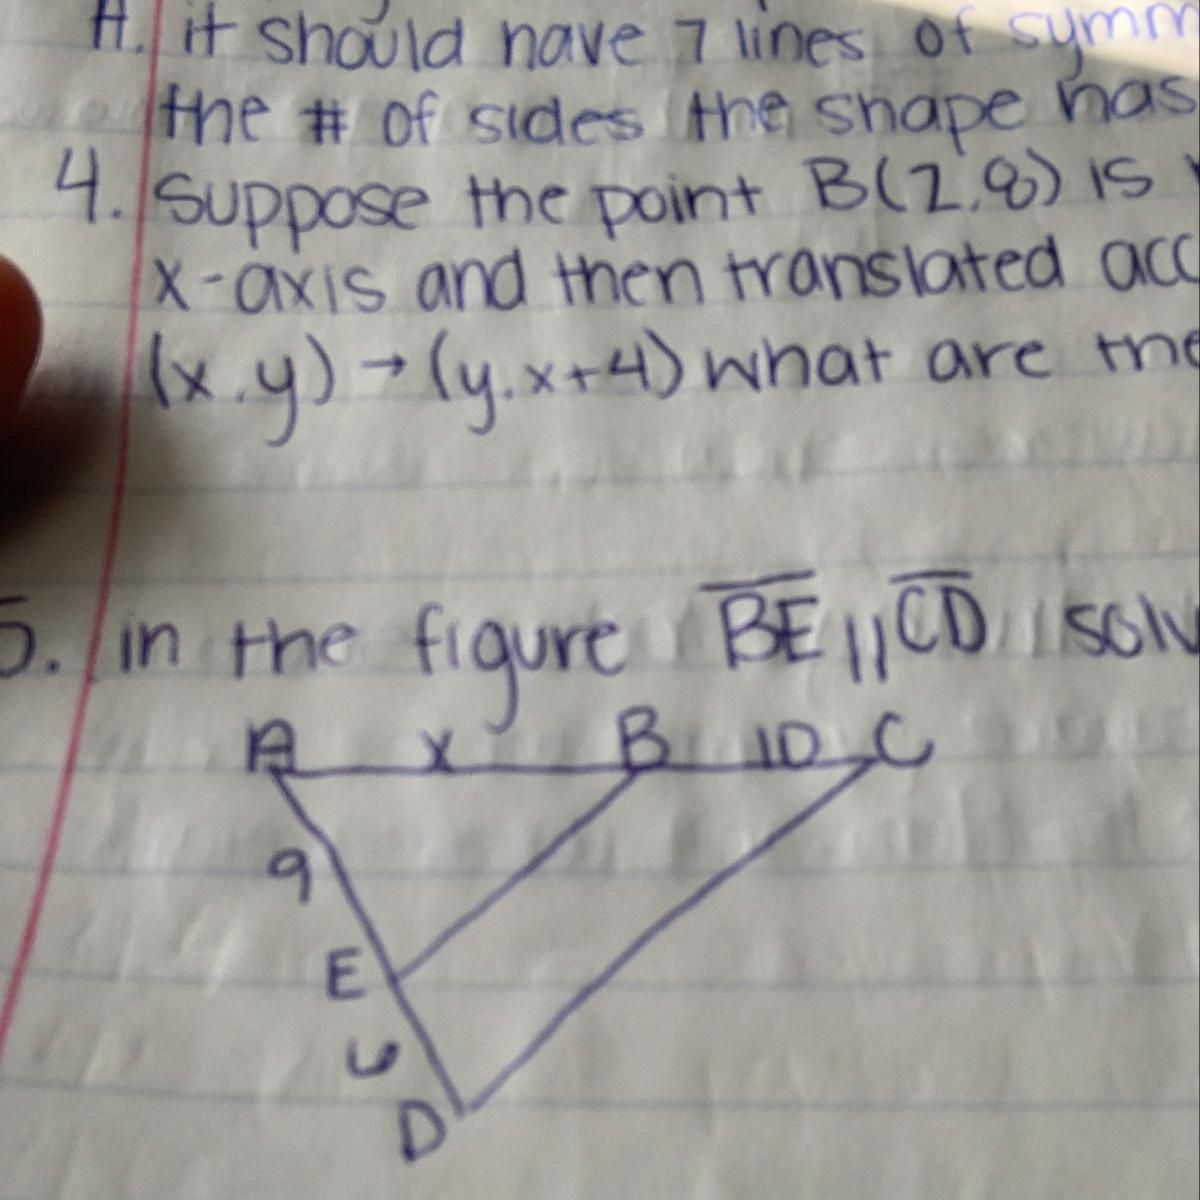 A. it should have 7 lines of symm
the # of sides the shape has
4. Suppose the point B(2,8) is
x-axis and then translated acc
(x,y)→(y,x+4) what are the
5. in the figure B̅E̅ || C̅D̅ solv
A x B 10 C
9
E
6
D